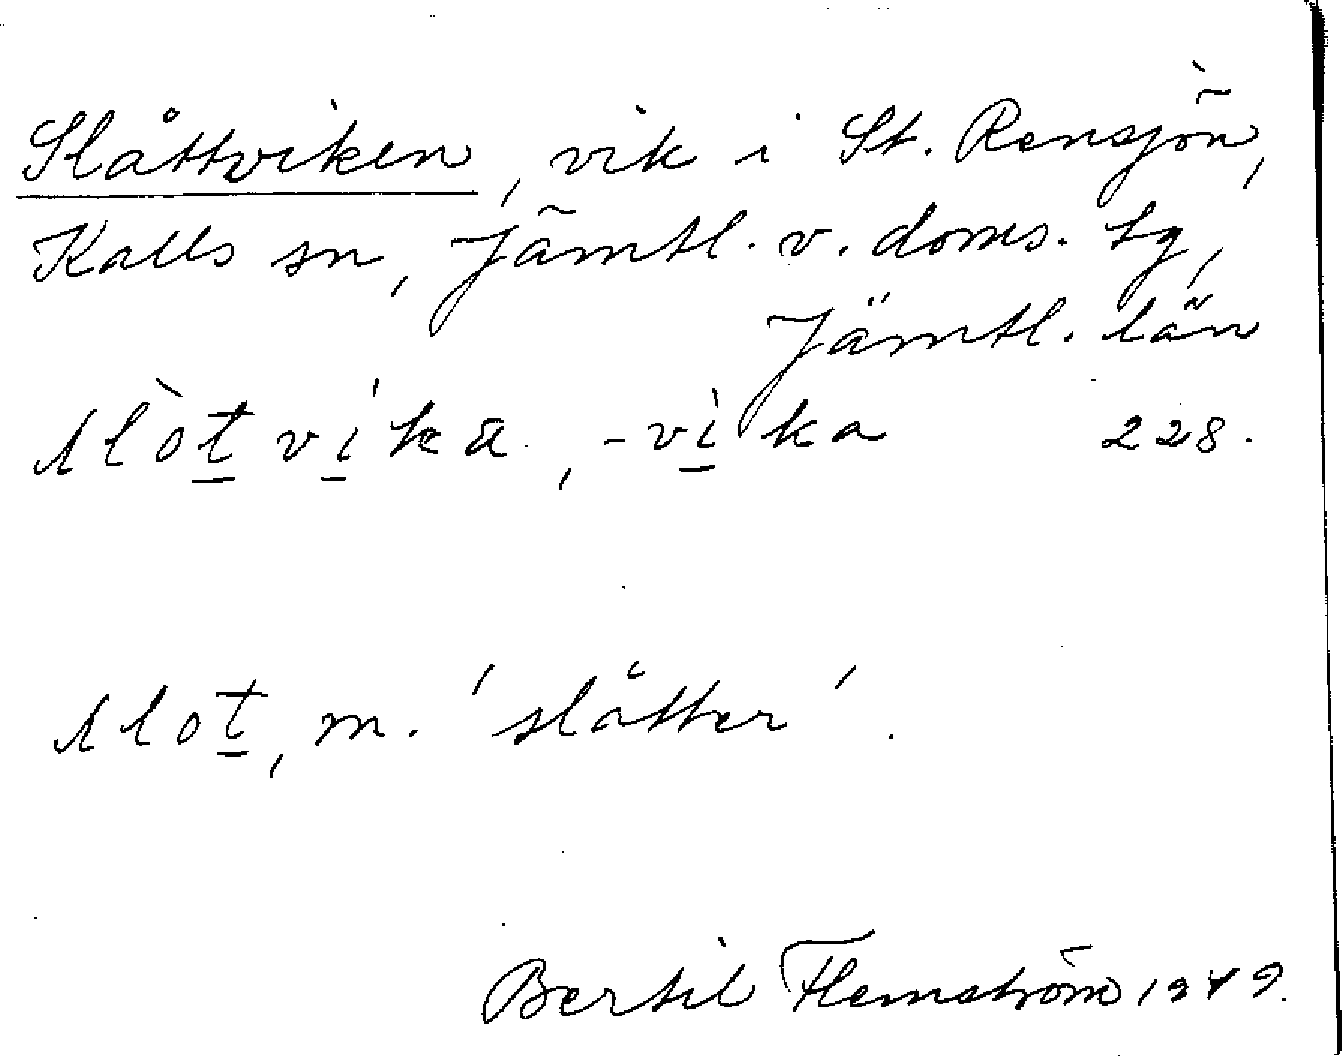 Slåttviken, vik i St. Rensjön,
Kalls sn, Jämtl. v. doms. tg,
Jämtl. län
slòt víkä, -vìka 228.
slot, m. 'slåtter'.
Bertil Flemström 1949.